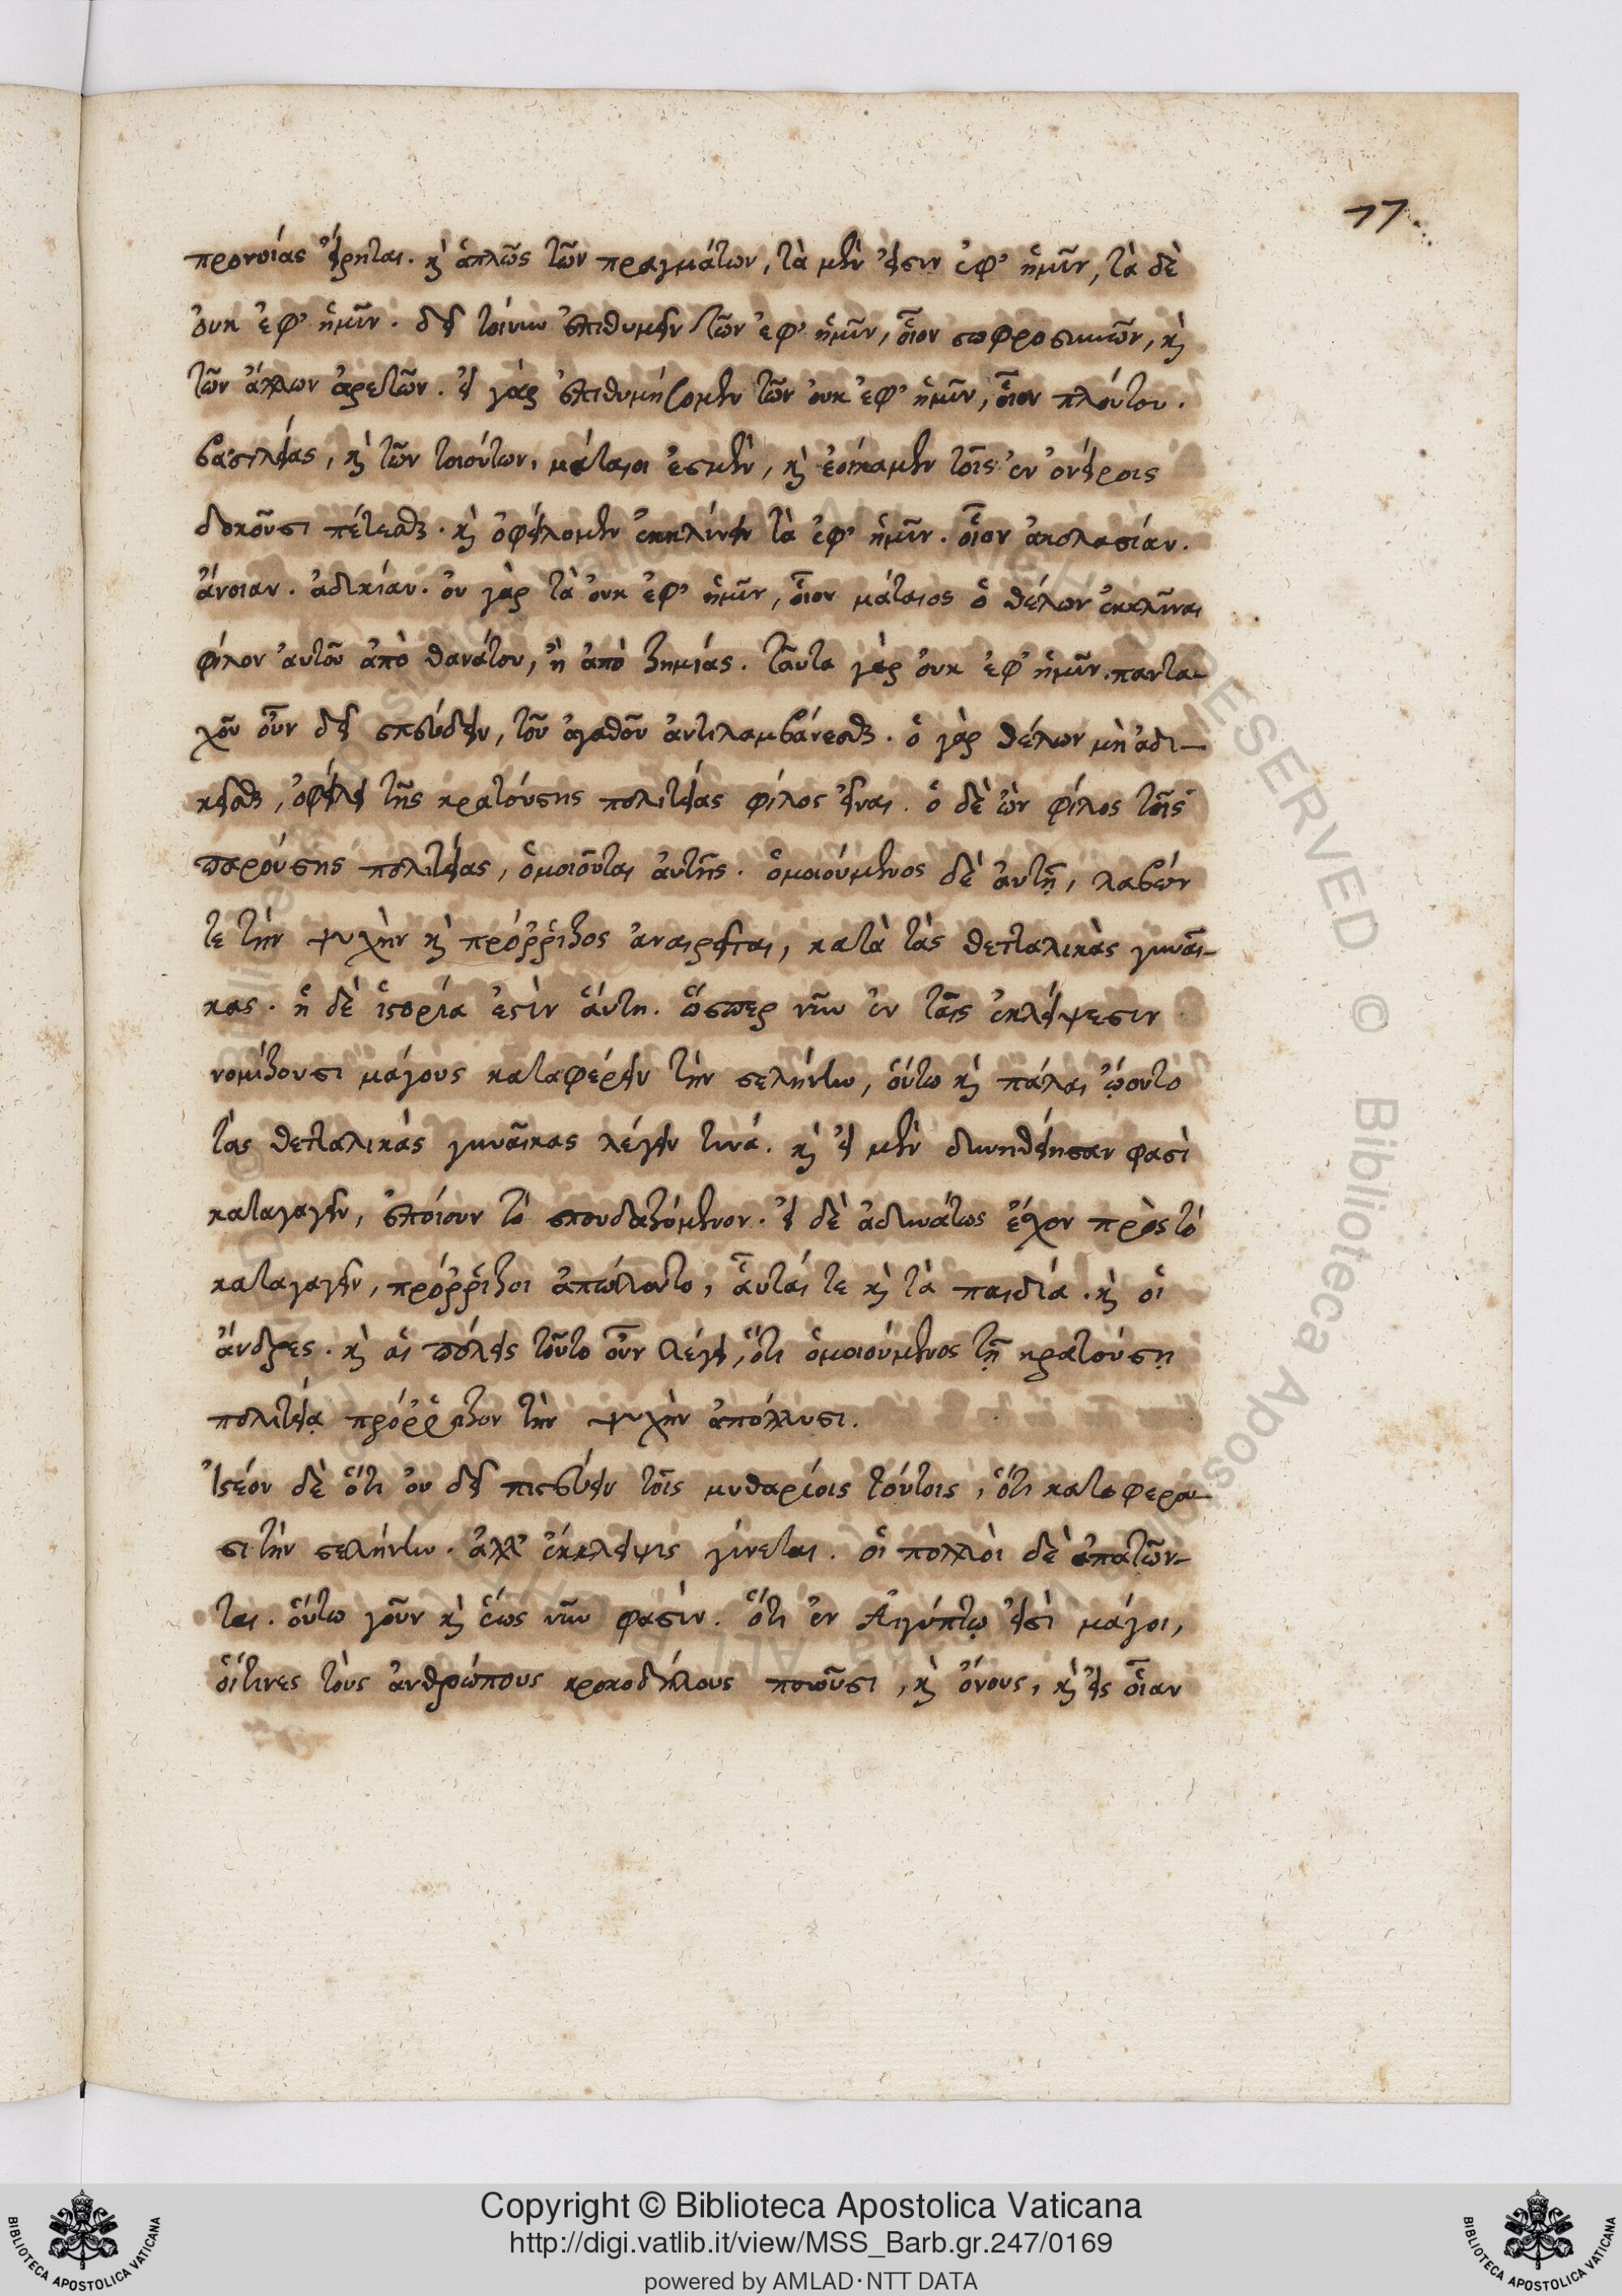 77.
προνοίας εἴρηται. κὶ ἁπλῶς τῶν πραγμάτων, τὰ μὲν εἰσιν ἐφ' ἡμῖν, τὰ δὲ
ὀυκ ἐφ' ἡμῖν. δεῖ τοίνυν ἐπιθυμεῖν τῶν ἐφ' ἡμῖν, οἷον σωφροσυνῶν, κὶ
τῶν ἄλλων ἀρετῶν. εἰ γὰρ ἐπιθυμήσομεν τῶν ὀυκ ἐφ' ἡμῖν, οἷον πλούτου.
βασιλείας, κὶ τῶν τοιούτων, μάταιοι ἐσμὲν, κὶ ἐοίκαμεν τοῖς ἐν ὀνείροις
δοκοῦσι πέτεσθαι. κὶ ὀφείλομεν ἐκκλίνειν τὰ ἐφ' ἡμῖν. οἷον ἀκολασίαν.
ἄνοιαν. ἀδικίαν. ὀυ γὰρ τὰ ὀυκ ἐφ' ἡμῖν, οἷον μάταιος ὁ θέλων ἐκκλῖναι
φίλον ἀυτοῦ ἀπὸ θανάτου, ἢ ἀπὸ ζημίας. ταῦτα γὰρ ὀυκ ἐφ' ἡμῖν. παντα-
χοῦ οὖν δεῖ σπεύδειν, τοῦ ἀγαθοῦ ἀντιλαμβάνεσθαι. ὁ γὰρ θέλων μὴ ἀδι-
κεῖσθαι, ὀφείλει τῆς κρατούσης πολιτείας φίλος εἶναι. ὁ δὲ ὢν φίλος τῆς
παρούσης πολιτείας, ὁμοιοῦται ἀυτῆς. ὁμοιούμενος δὲ ἀυτῇ, λαβών
τε τὴν ψυχὴν κὶ πρόῤῥιζος ἀναιρεῖται, κατὰ τὰς θετταλικὰς γυναῖ-
κας. ἡ δὲ ἱστορία ἐστὶν ἅυτη. ὥσπερ νῦν ἐν ταῖς ἐκλείψεσιν
νομίζουσι μάγους καταφέρειν τὴν σελήνην, ὅυτω κὶ πάλαι ᾤοντο
τὰς θετταλικὰς γυναῖκας λέγειν τινά. κὶ εἰ μὲν δυνηθείησαν φασὶ
καταγαγεῖν, ἐποίουν τὸ σπουδαζόμενον. εἰ δὲ ἀδυνάτως ἔχον πρὸς τὸ
καταγαγεῖν, πρόῤῥιζοι ἀπώλοντο, ἁυταί τε κὶ τὰ παιδία. κὶ οἱ
ἄνδρες. κὶ αἱ πόλεις τοῦτο οὖν λέγει, ὅτι ὁμοιούμενος τῇ κρατούσῃ
πολιτείᾳ πρόῤῥιζον τὴν ψυχὴν ἀπόλλυσι.
Ἰστέον δὲ ὅτι ὀυ δεῖ πιστεύειν τοῖς μυθαρίοις τούτοις, ὅτι καταφερου-
σι τὴν σελήνην. ἀλλ' ἔκκλειψις γίνεται. οἱ πολλοὶ δὲ ἀπατῶν-
ται. ὅυτω γοῦν κὶ ἕως νῦν φασὶν. ὅτι ἐν Αἰγύπτῳ εἰσὶ μάγοι,
ὅιτινες τοὺς ἀνθρώπους κροκοδείλους ποιοῦσι, κὶ ὄνους, κὶ εἰς οἵαν
Copyright © Biblioteca Apostolica Vaticana
http://digi.vatlib.it/view/MSS_Barb.gr.247/0169
powered by AMLAD·NTT DATA